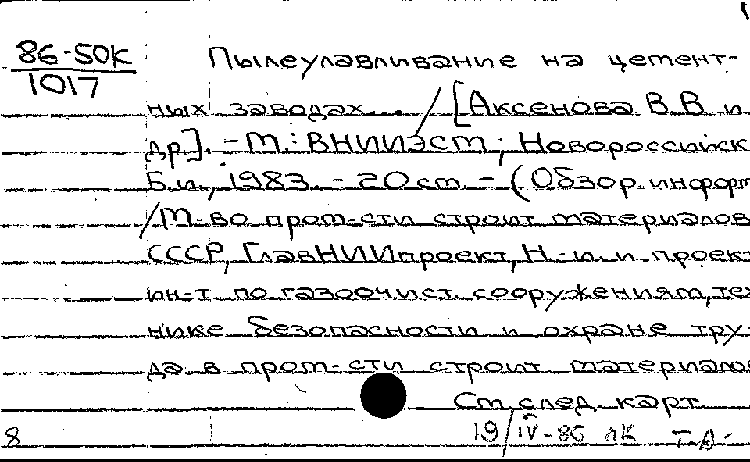 86-50К
1017
Пылеулавливание на цемент-
ных заводах... / [Аксенова В.В и
др]. - М.: ВНИИЭСМ; Новороссийск
Б.и., 1983. - 20 см. - (Обзор. информ
/ М-во пром-сти строит материалов
СССР, ГлавНИИпроект, Н.-и. и проект
ин-т по газоочист. сооружениям, тех
нике безопасности и охране тру-
да в пром-сти строит материалов
См. след. карт
8
19/IV-86 лк Т.А.